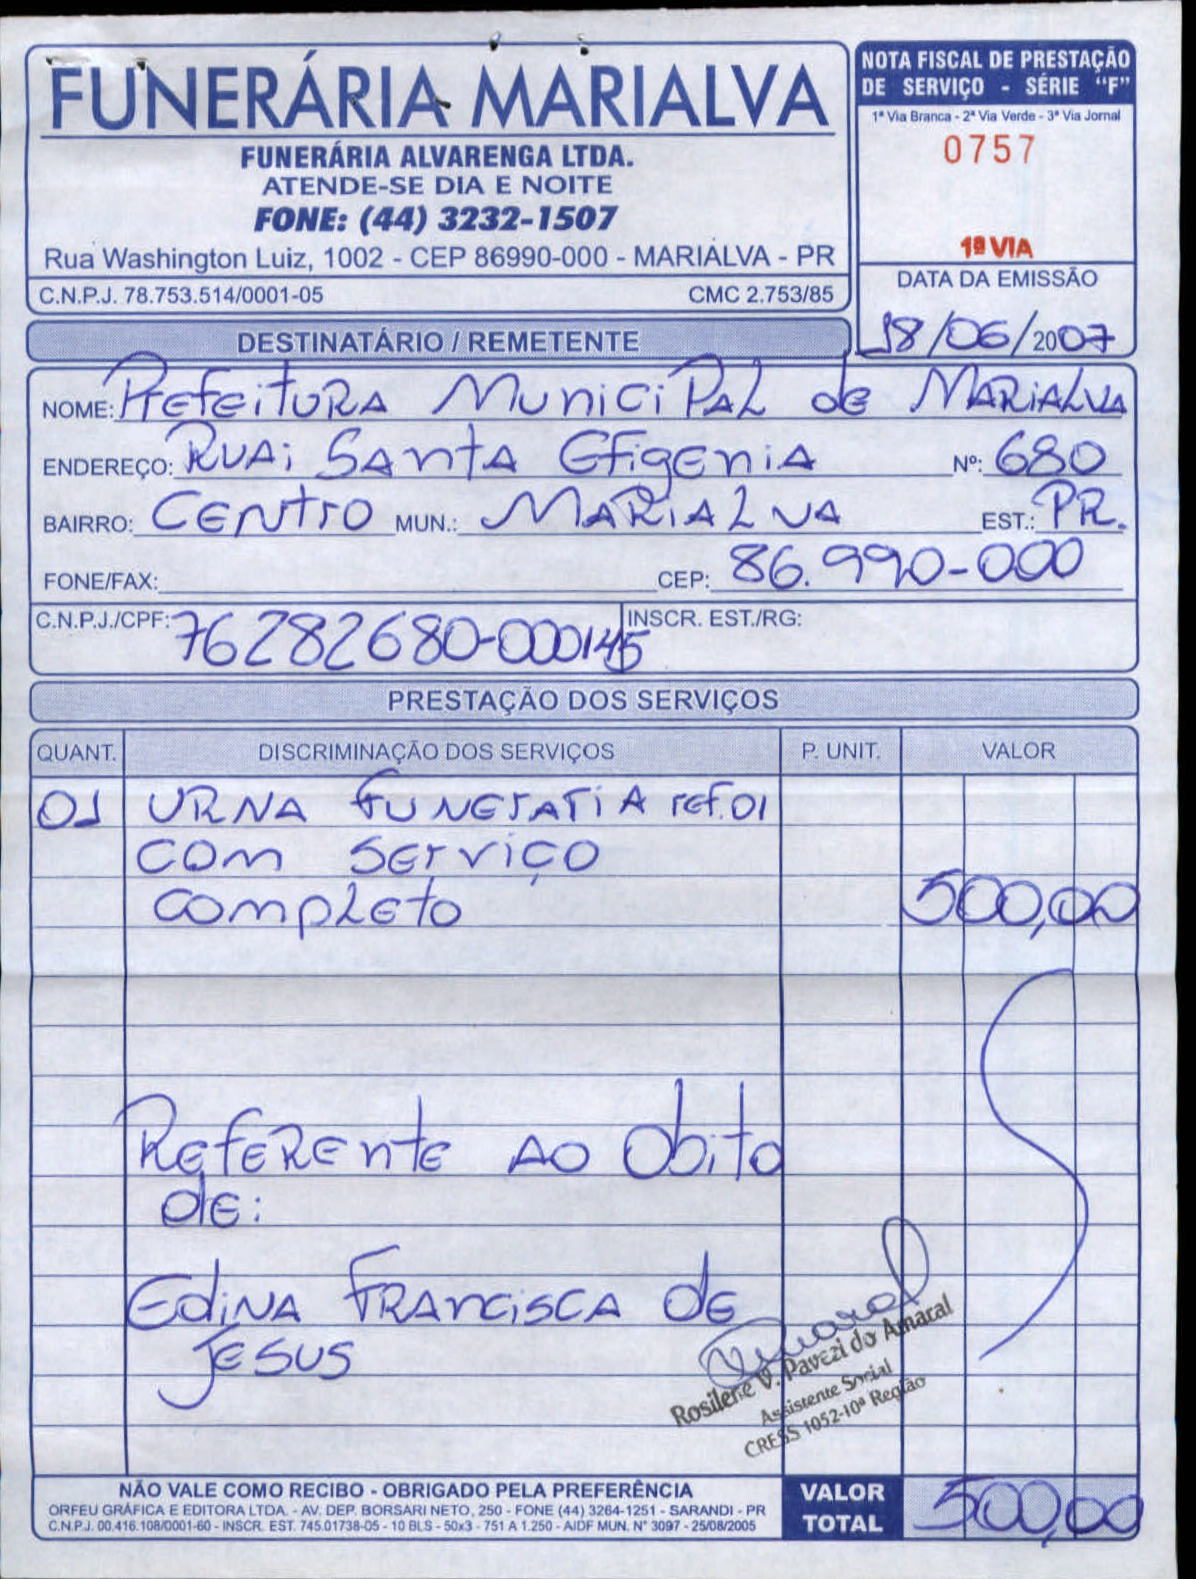 FUNERÁRIA MARIALVA
FUNERÁRIA ALVARENGA LTDA.
ATENDE-SE DIA E NOITE
FONE: (44) 3232-1507
Rua Washington Luiz, 1002 - CEP 86990-000 - MARIALVA - PR
C.N.P.J. 78.753.514/0001-05 CMC 2.753/85
NOTA FISCAL DE PRESTAÇÃO
DE SERVIÇO - SÉRIE "F"
1ª Via Branca - 2ª Via Verde - 3ª Via Jornal
0757
1ª VIA
DATA DA EMISSÃO
18/06/2007
DESTINATÁRIO / REMETENTE
NOME: Prefeitura Municipal de Marialva
ENDEREÇO: Rua; Santa Efigenia Nº: 680
BAIRRO: Centro MUN.: Marialva EST.: PR.
FONE/FAX: CEP: 86.990-000
C.N.P.J./CPF: 76282680-000145 INSCR. EST./RG:
PRESTAÇÃO DOS SERVIÇOS
QUANT. DISCRIMINAÇÃO DOS SERVIÇOS P. UNIT. VALOR
01 URNA Funeraria ref.01
com serviço
completo 500,00
Referente ao Obito
de:
Edina Francisca de
Jesus
Rosilene V. Pavezi do Amaral
Assistente Social
CRESS 1052-10ª Região
NÃO VALE COMO RECIBO - OBRIGADO PELA PREFERÊNCIA
ORFEU GRÁFICA E EDITORA LTDA. - AV. DEP. BORSARI NETO, 250 - FONE (44) 3264-1251 - SARANDI - PR
C.N.P.J. 00.416.108/0001-60 - INSCR. EST. 745.01738-05 - 10 BLS - 50x3 - 751 A 1.250 - AIDF MUN. N° 3097 - 25/08/2005
VALOR
TOTAL 500,00